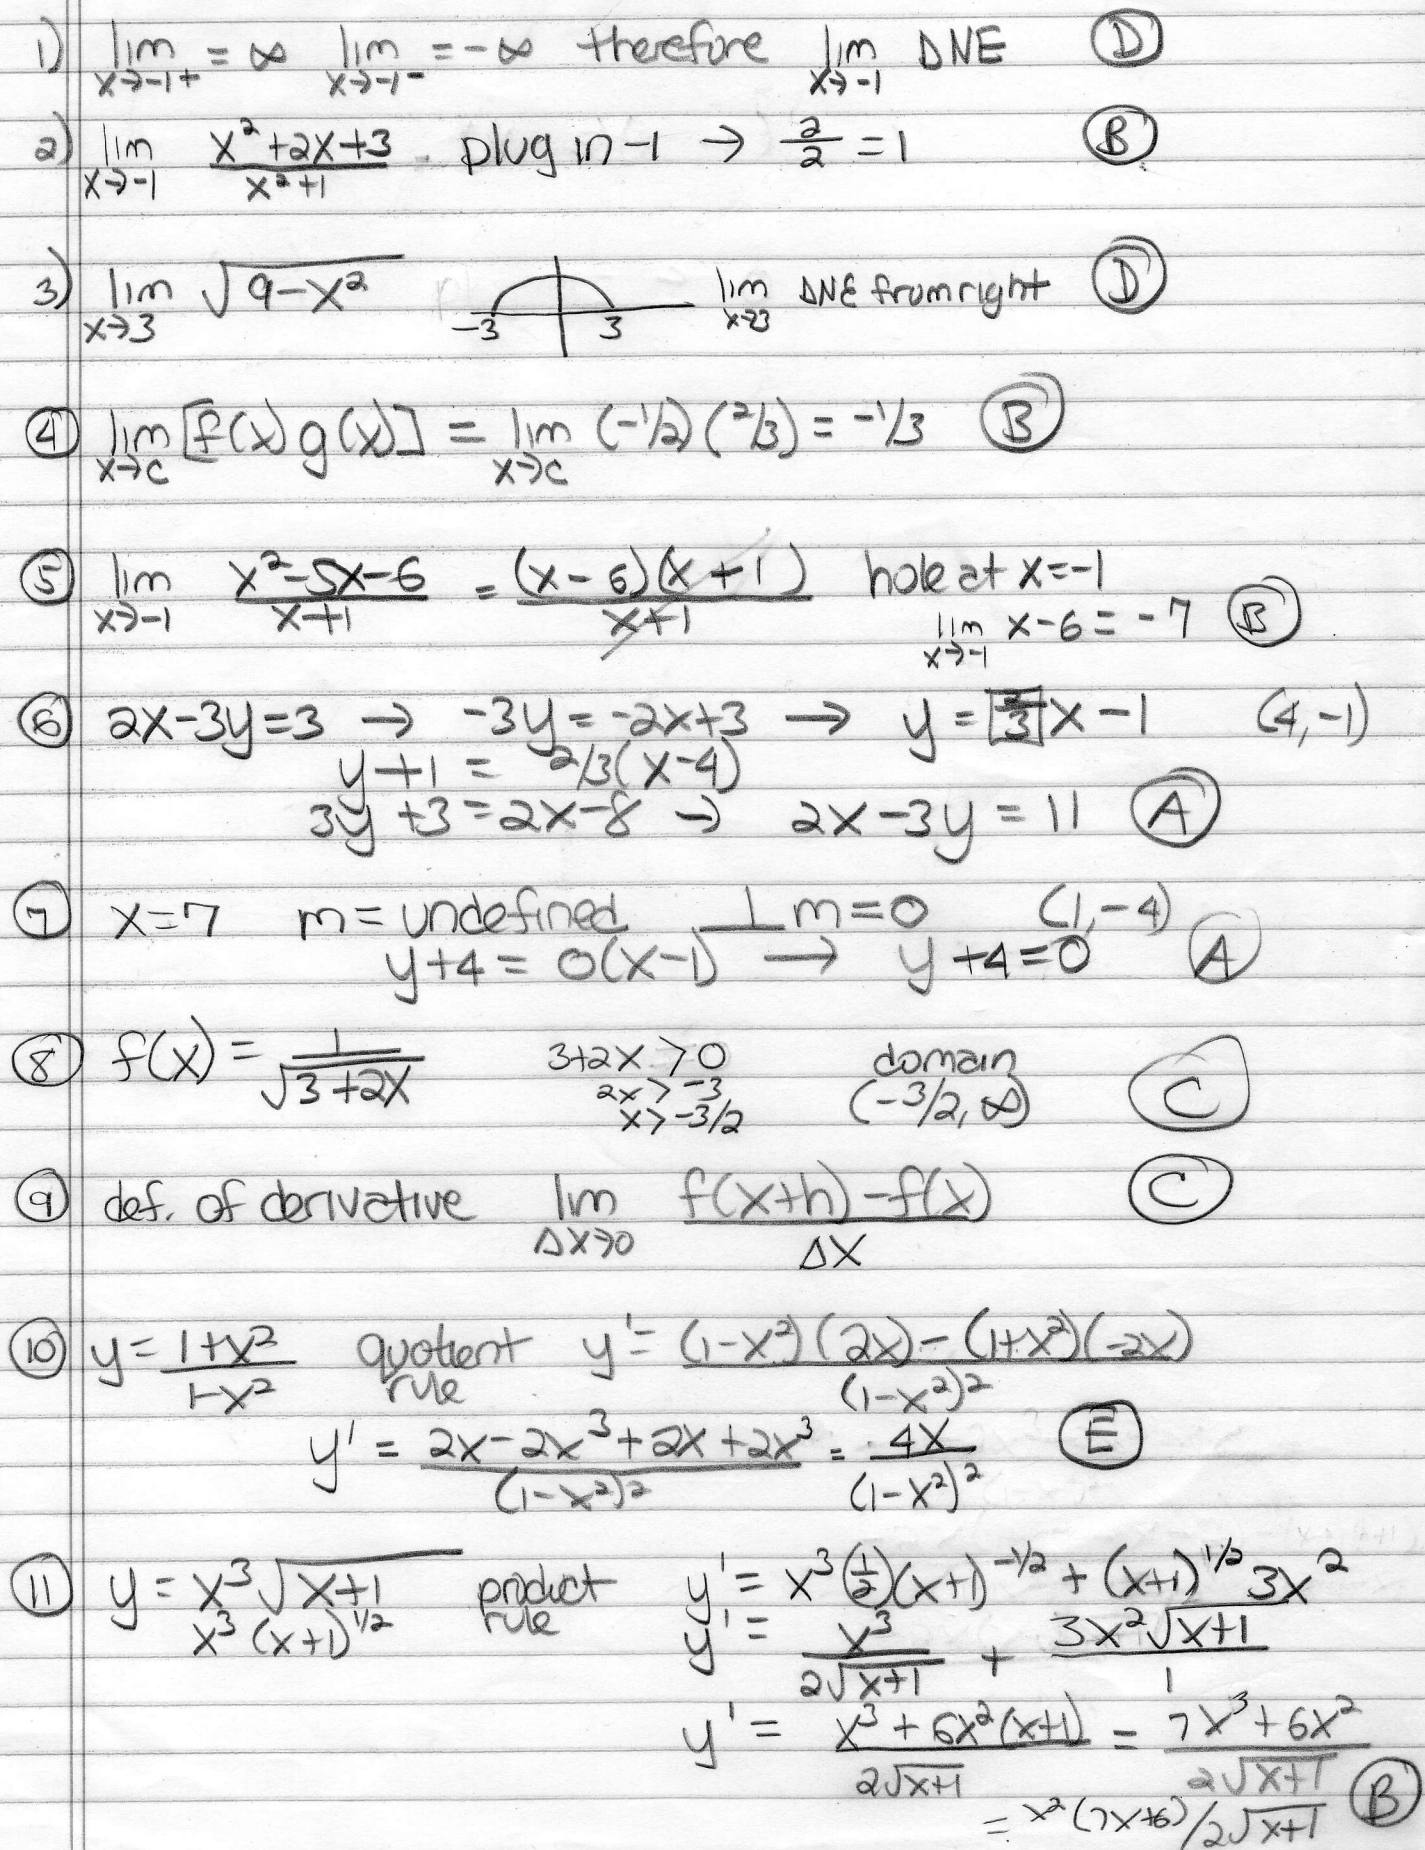 1) lim x→-1+ = ∞ lim x→-1- = -∞ therefore lim x→-1 DNE D
2) lim x→-1 x²+2x+3 / x²+1 . plug in -1 → 2/2 = 1 B
3) lim x→3 √9-x² -3 3 lim x→3 DNE from right D
4 lim x→c [f(x) g(x)] = lim x→c (-1/2)(2/3) = -1/3 B
5 lim x→-1 x²-5x-6 / x+1 = (x-6)(x+1) / x+1 hole at x=-1
lim x→-1 x-6 = -7 B
6 2x-3y=3 → -3y=-2x+3 → y = 2/3 x-1 (4,-1)
y+1 = 2/3(x-4)
3y+3=2x-8 → 2x-3y=11 A
7 x=7 m=undefined ⊥ m=0 (1,-4)
y+4=0(x-1) → y+4=0 A
8 f(x) = 1/√3+2x 3+2x>0 domain C
2x>-3 (-3/2, ∞)
x>-3/2
9 def. of derivative lim Δx→0 f(x+h)-f(x) / Δx C
10 y = 1+x² / 1-x² quotient rule y' = (1-x²)(2x)-(1+x²)(-2x) / (1-x²)²
y' = 2x-2x³+2x+2x³ / (1-x²)² = 4x / (1-x²)² E
11 y = x³√x+1 product rule y' = x³(1/2)(x+1)^-1/2 + (x+1)^1/2 3x²
x³(x+1)^1/2 y' = x³ / 2√x+1 + 3x²√x+1 / 1
y' = x³+6x²(x+1) / 2√x+1 = 7x³+6x² / 2√x+1
= x²(7x+6)/2√x+1 B